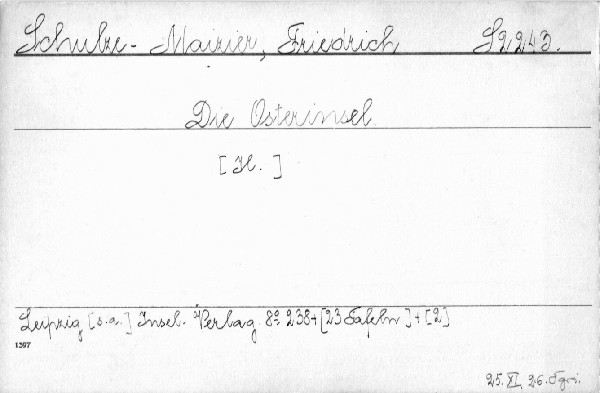 Schulze-Maizier, Friedrich S2243.
Die Osterinsel.
[Il.]
Leipzig [s.a.] Insel-Verlag. 8º 238+[23 Tafeln]+[2]
1397
25. XI. 26.